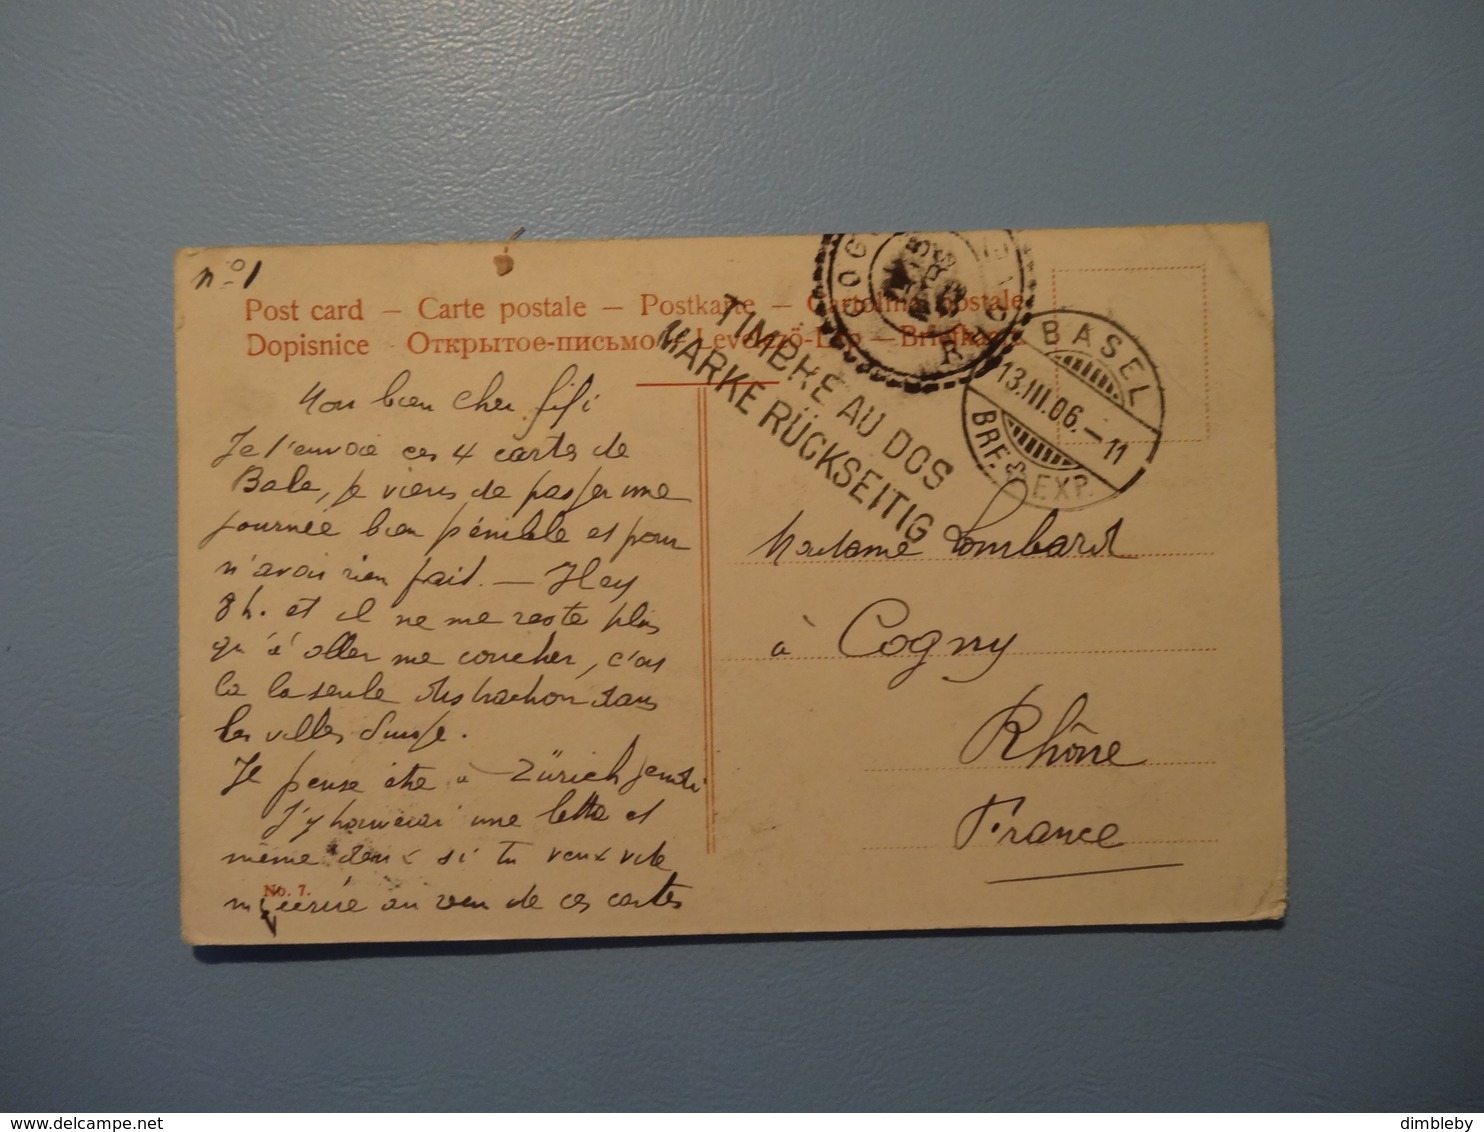 n° 1
Post card – Carte postale – Postkarte – Cartolina postale
Dopisnice – Открытое-письмо – Levelező-Lap – Briefkaart
TIMBRE AU DOS
MARKE RÜCKSEITIG
BASEL
13.III.06.–11
BRF. & EXP.
Mon bien cher fifi
Je t'envoie ces 4 cartes de
Bale, je viens de passer une
journée bien pénible et pour
n'avoir rien fait. — Il est
8 h. et il ne me reste plus
qu'à aller me coucher, c'est
là la seule distraction dans
les villes Suisse.
Je pense être à Zürich jeudi
J'y trouverai une lettre et
même deux si tu veux vite
m'écrire au reçu de ces cartes
No. 7.
Madame Lombard
à Cogny
Rhône
France
www.delcampe.net
dimbleby